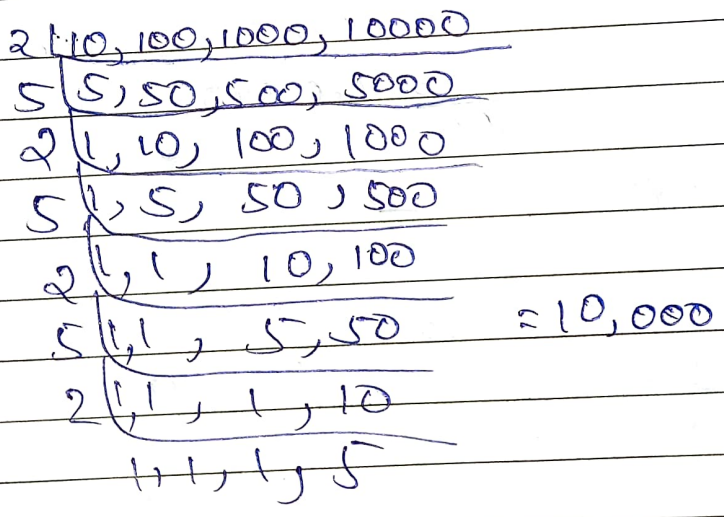 2 10, 100, 1000, 10000
5 5, 50, 500, 5000
2 1, 10, 100, 1000
5 1, 5, 50, 500
2 1, 1, 10, 100
5 1, 1, 5, 50 = 10,000
2 1, 1, 1, 10
1, 1, 1, 5